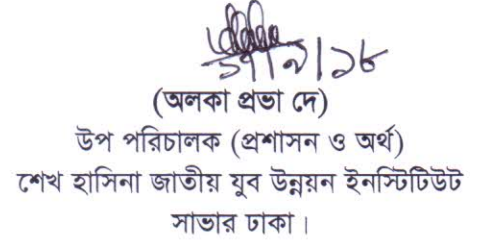 (অলকা প্রভা দে)
উপ পরিচালক (প্রশাসন ও অর্থ)
শেখ হাসিনা জাতীয় যুব উন্নয়ন ইনস্টিটিউট
সাভার ঢাকা।